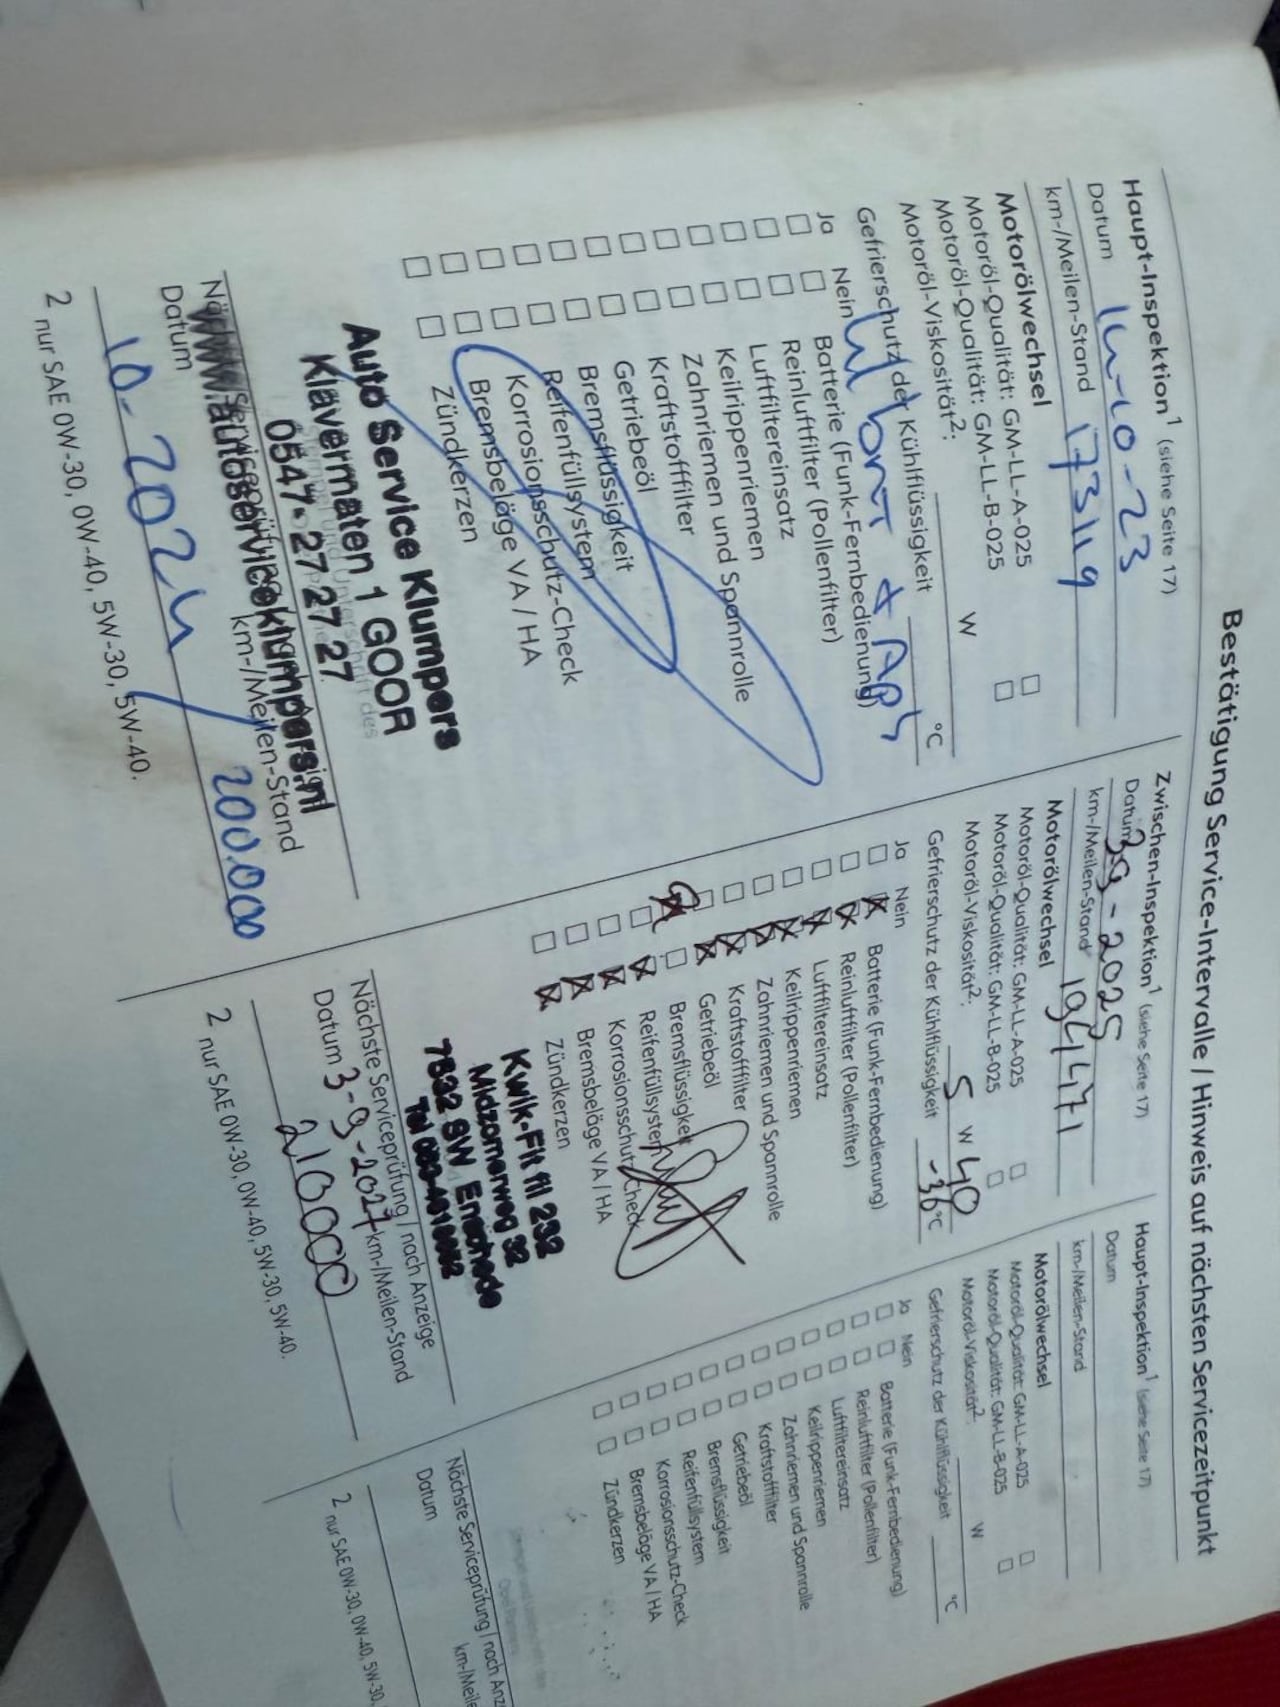 Bestätigung Service-Intervalle / Hinweis auf nächsten Servicezeitpunkt
Haupt-Inspektion¹ (siehe Seite 17)
Datum 14-10-23
km-/Meilen-Stand 173119
Motorölwechsel
Motoröl-Qualität: GM-LL-A-025
Motoröl-Qualität: GM-LL-B-025
Motoröl-Viskosität²: W
Gefrierschutz der Kühlflüssigkeit °C
Ja Nein
Batterie (Funk-Fernbedienung)
Reinluftfilter (Pollenfilter)
Luftfiltereinsatz
Keilrippenriemen
Zahnriemen und Spannrolle
Kraftstofffilter
Getriebeöl
Bremsflüssigkeit
Reifenfüllsystem
Korrosionsschutz-Check
Bremsbeläge VA / HA
Zündkerzen
Auto Service Klumpers
Klavermaten 1 GOOR
0547- 27 27 27
www.autoserviceklumpers.nl
Datum km-/Meilen-Stand
10-2024 / 200.000
2 nur SAE 0W-30, 0W-40, 5W-30, 5W-40.
Zwischen-Inspektion¹ (siehe Seite 17)
Datum 3-9-2025
km-/Meilen-Stand 194471
Motorölwechsel
Motoröl-Qualität: GM-LL-A-025
Motoröl-Qualität: GM-LL-B-025
Motoröl-Viskosität²: 5 W 40
Gefrierschutz der Kühlflüssigkeit -36 °C
Ja Nein
Batterie (Funk-Fernbedienung)
Reinluftfilter (Pollenfilter)
Luftfiltereinsatz
Keilrippenriemen
Zahnriemen und Spannrolle
Kraftstofffilter
Getriebeöl
Bremsflüssigkeit
Reifenfüllsystem
Korrosionsschutz-Check
Bremsbeläge VA / HA
Zündkerzen
Kwik-Fit fil 232
32
7532 SW Enschede
Tel
Nächste Serviceprüfung / nach Anzeige
Datum 3-9-2027 km-/Meilen-Stand
210000
2 nur SAE 0W-30, 0W-40, 5W-30, 5W-40.
Haupt-Inspektion¹ (siehe Seite 17)
Datum
km-/Meilen-Stand
Motorölwechsel
Motoröl-Qualität: GM-LL-A-025
Motoröl-Qualität: GM-LL-B-025
Motoröl-Viskosität²: W
Gefrierschutz der Kühlflüssigkeit °C
Ja Nein
Batterie (Funk-Fernbedienung)
Reinluftfilter (Pollenfilter)
Luftfiltereinsatz
Keilrippenriemen
Zahnriemen und Spannrolle
Kraftstofffilter
Getriebeöl
Bremsflüssigkeit
Reifenfüllsystem
Korrosionsschutz-Check
Bremsbeläge VA / HA
Zündkerzen
Nächste Serviceprüfung / nach Anz
Datum km-/Meile
2 nur SAE 0W-30, 0W-40, 5W-30,